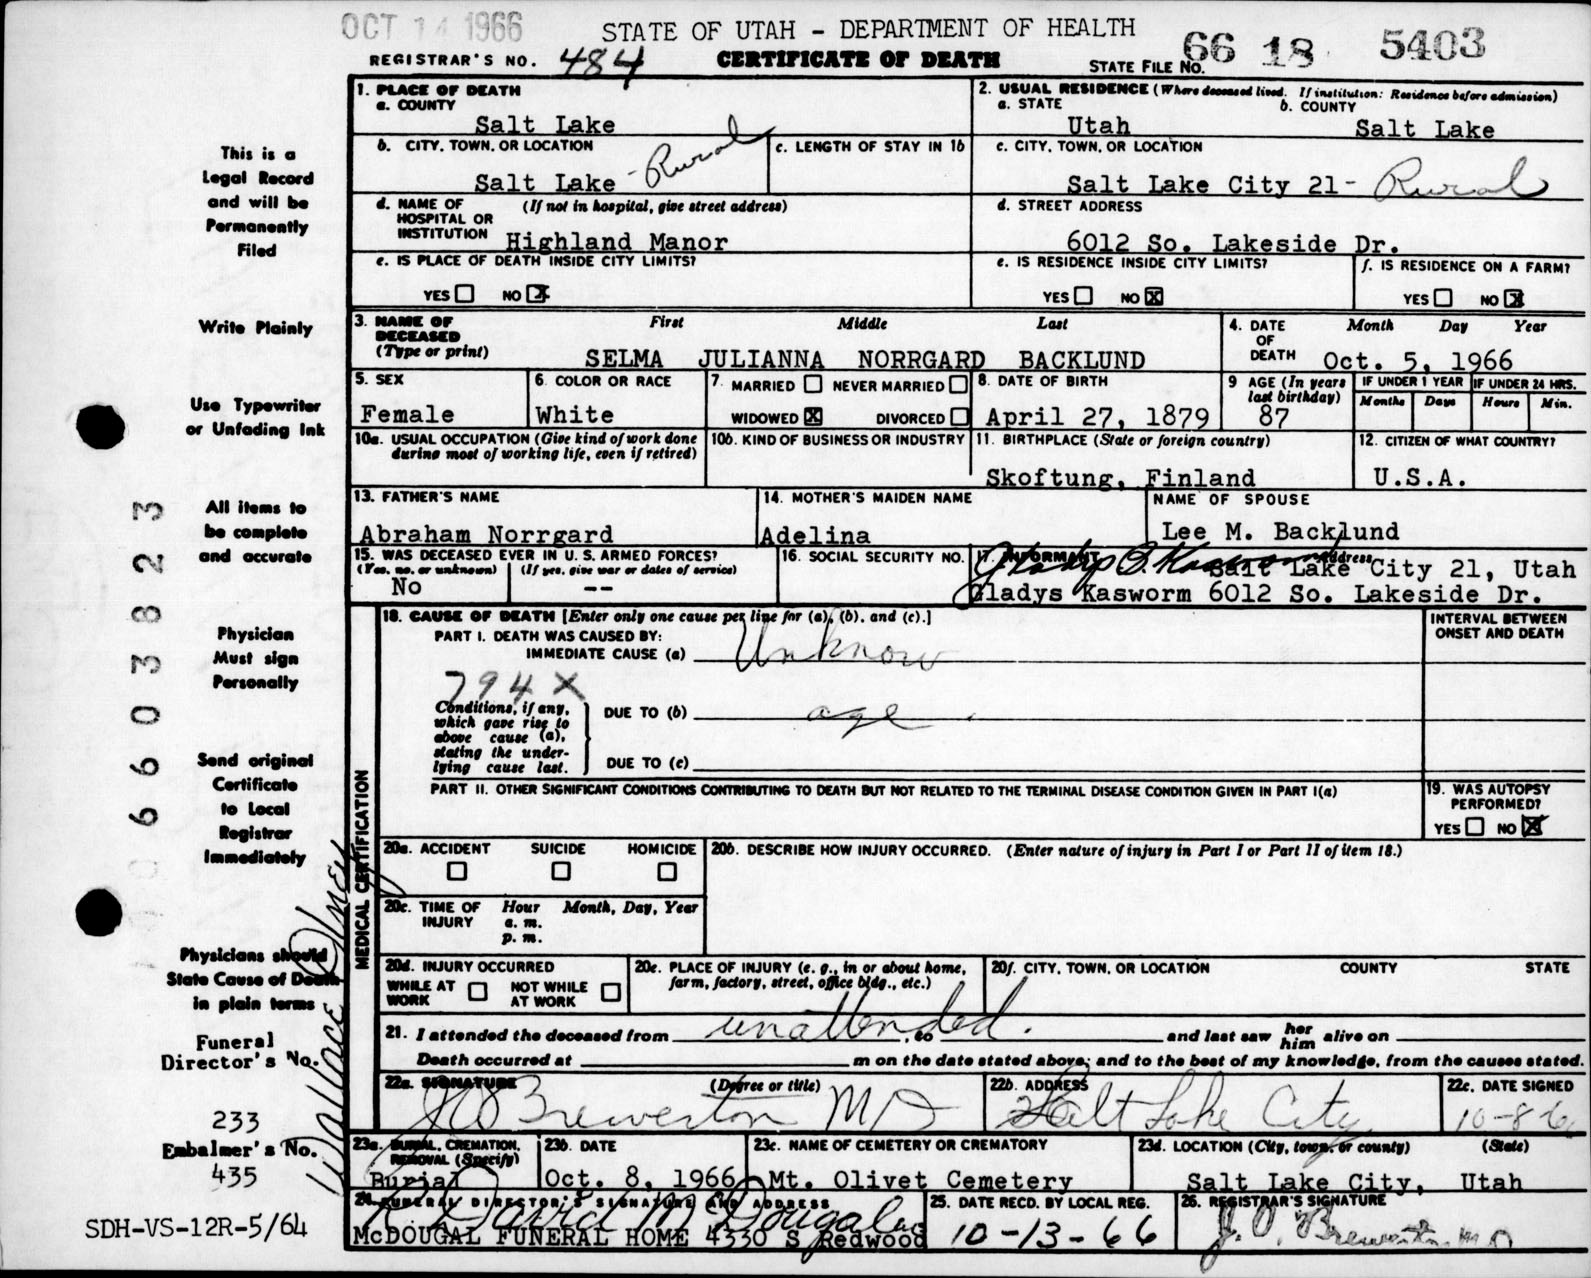 OCT 14 1966
STATE OF UTAH - DEPARTMENT OF HEALTH
REGISTRAR'S NO. 484 CERTIFICATE OF DEATH STATE FILE NO. 66 18 5403
This is a
Legal Record
and will be
Permanently
Filed
Write Plainly
Use Typewriter
or Unfading Ink
All items to
be complete
and accurate
Physician
Must sign
Personally
Send original
Certificate
to Local
Registrar
Immediately
Physicians should
State Cause of Death
in plain terms
Funeral
Director's No.
233
Embalmer's No.
435
SDH-VS-12R-5/64
6 6 0 3 8 2 3
Wallace
MEDICAL CERTIFICATION
1. PLACE OF DEATH
a. COUNTY
Salt Lake
2. USUAL RESIDENCE (Where deceased lived. If institution: Residence before admission)
a. STATE b. COUNTY
Utah Salt Lake
b. CITY, TOWN, OR LOCATION
Salt Lake - Rural
c. LENGTH OF STAY IN 1b
c. CITY, TOWN, OR LOCATION
Salt Lake City 21- Rural
d. NAME OF (If not in hospital, give street address)
HOSPITAL OR
INSTITUTION Highland Manor
d. STREET ADDRESS
6012 So. Lakeside Dr.
e. IS PLACE OF DEATH INSIDE CITY LIMITS?
YES NO X
e. IS RESIDENCE INSIDE CITY LIMITS?
YES NO X
f. IS RESIDENCE ON A FARM?
YES NO X
3. NAME OF First Middle Last
DECEASED
(Type or print) SELMA JULIANNA NORRGARD BACKLUND
4. DATE Month Day Year
OF
DEATH Oct. 5, 1966
5. SEX
Female
6. COLOR OR RACE
White
7. MARRIED NEVER MARRIED
WIDOWED X DIVORCED
8. DATE OF BIRTH
April 27, 1879
9 AGE (In years
last birthday)
87
IF UNDER 1 YEAR IF UNDER 24 HRS.
Months Days Hours Min.
10a. USUAL OCCUPATION (Give kind of work done
during most of working life, even if retired)
10b. KIND OF BUSINESS OR INDUSTRY
11. BIRTHPLACE (State or foreign country)
Skoftung, Finland
12. CITIZEN OF WHAT COUNTRY?
U.S.A.
13. FATHER'S NAME
Abraham Norrgard
14. MOTHER'S MAIDEN NAME
Adelina
NAME OF SPOUSE
Lee M. Backlund
15. WAS DECEASED EVER IN U. S. ARMED FORCES?
(Yes, no, or unknown) (If yes, give war or dates of service)
No --
16. SOCIAL SECURITY NO.
17. INFORMANT Address
Salt Lake City 21, Utah
Gladys Kasworm 6012 So. Lakeside Dr.
18. CAUSE OF DEATH [Enter only one cause per line for (a), (b), and (c).]
INTERVAL BETWEEN
ONSET AND DEATH
PART I. DEATH WAS CAUSED BY:
IMMEDIATE CAUSE (a) Unknow
794X
Conditions, if any,
which gave rise to
above cause (a),
stating the under-
lying cause last.
DUE TO (b) age
DUE TO (c)
PART II. OTHER SIGNIFICANT CONDITIONS CONTRIBUTING TO DEATH BUT NOT RELATED TO THE TERMINAL DISEASE CONDITION GIVEN IN PART I(a)
19. WAS AUTOPSY
PERFORMED?
YES NO X
20a. ACCIDENT SUICIDE HOMICIDE
20b. DESCRIBE HOW INJURY OCCURRED. (Enter nature of injury in Part I or Part II of item 18.)
20c. TIME OF Hour Month, Day, Year
INJURY a. m.
p. m.
20d. INJURY OCCURRED
WHILE AT NOT WHILE
WORK AT WORK
20e. PLACE OF INJURY (e. g., in or about home,
farm, factory, street, office bldg., etc.)
20f. CITY, TOWN, OR LOCATION COUNTY STATE
21. I attended the deceased from unattended. , to and last saw her him alive on
Death occurred at m on the date stated above; and to the best of my knowledge, from the causes stated.
22a. SIGNATURE (Degree or title)
J O Brewerton MD
22b. ADDRESS
Salt Lake City
22c. DATE SIGNED
10-8-6
23a. BURIAL, CREMATION,
REMOVAL (Specify)
Burial
23b. DATE
Oct. 8, 1966
23c. NAME OF CEMETERY OR CREMATORY
Mt. Olivet Cemetery
23d. LOCATION (City, town, or county) (State)
Salt Lake City, Utah
24. FUNERAL DIRECTOR'S SIGNATURE AND ADDRESS
David McDougal
McDOUGAL FUNERAL HOME 4330 S Redwood
25. DATE RECD. BY LOCAL REG.
10-13-66
26. REGISTRAR'S SIGNATURE
J. O. Brewerton MD